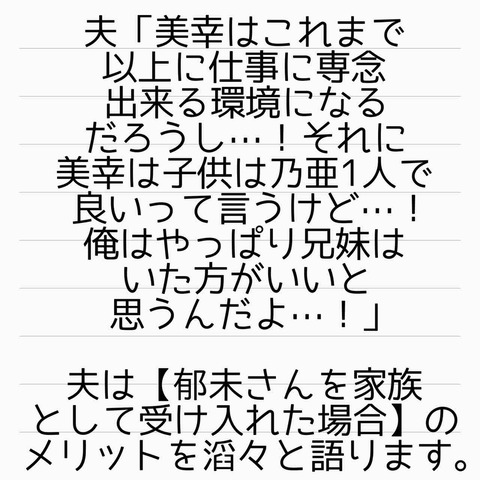 夫「美幸はこれまで
以上に仕事に専念
出来る環境になる
だろうし…！それに
美幸は子供は乃亜1人で
良いって言うけど…！
俺はやっぱり兄妹は
いた方がいいと
思うんだよ…！」
夫は【郁未さんを家族
として受け入れた場合】の
メリットを滔々と語ります。